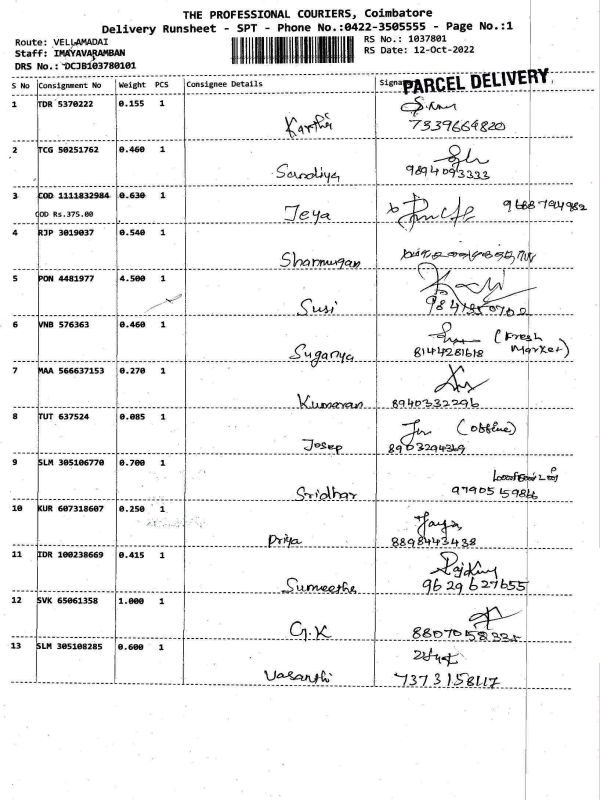 THE PROFESSIONAL COURIERS, Coimbatore
Delivery Runsheet - SPT - Phone No.:0422-3505555 - Page No.:1
Route: VELLAMADAI RS No.: 1037801
Staff: IMAYAVARAMBAN RS Date: 12-Oct-2022
DRS No.: DCJB103780101
PARCEL DELIVERY
S No Consignment No Weight PCS Consignee Details
1 TDR 5370222 0.155 1
Karthi 7339664820
2 TCG 50251762 0.460 1
Sandiya 9894093333
3 COD 1111832984 0.630 1
COD Rs.375.00 Jeya 9688794982
4 RJP 3019037 0.540 1
Sharmugan
5 PON 4481977 4.500 1
Susi
6 VNB 576363 0.460 1 (Fresh
Suganya 8144281618 Market)
7 MAA 566637153 0.270 1
Kumaran 8940332296
8 TUT 637524 0.085 1 (Offline)
Josep 8903294369
9 SLM 305106770 0.700 1
Sridhar 9790515984
10 KUR 607318607 0.250 1
Priya 8898443438
11 IDR 100238669 0.415 1
Sumeetha 9629627655
12 SVK 65061358 1.000 1
G.K
13 SLM 305108285 0.600 1
Vasanthi 7373158117